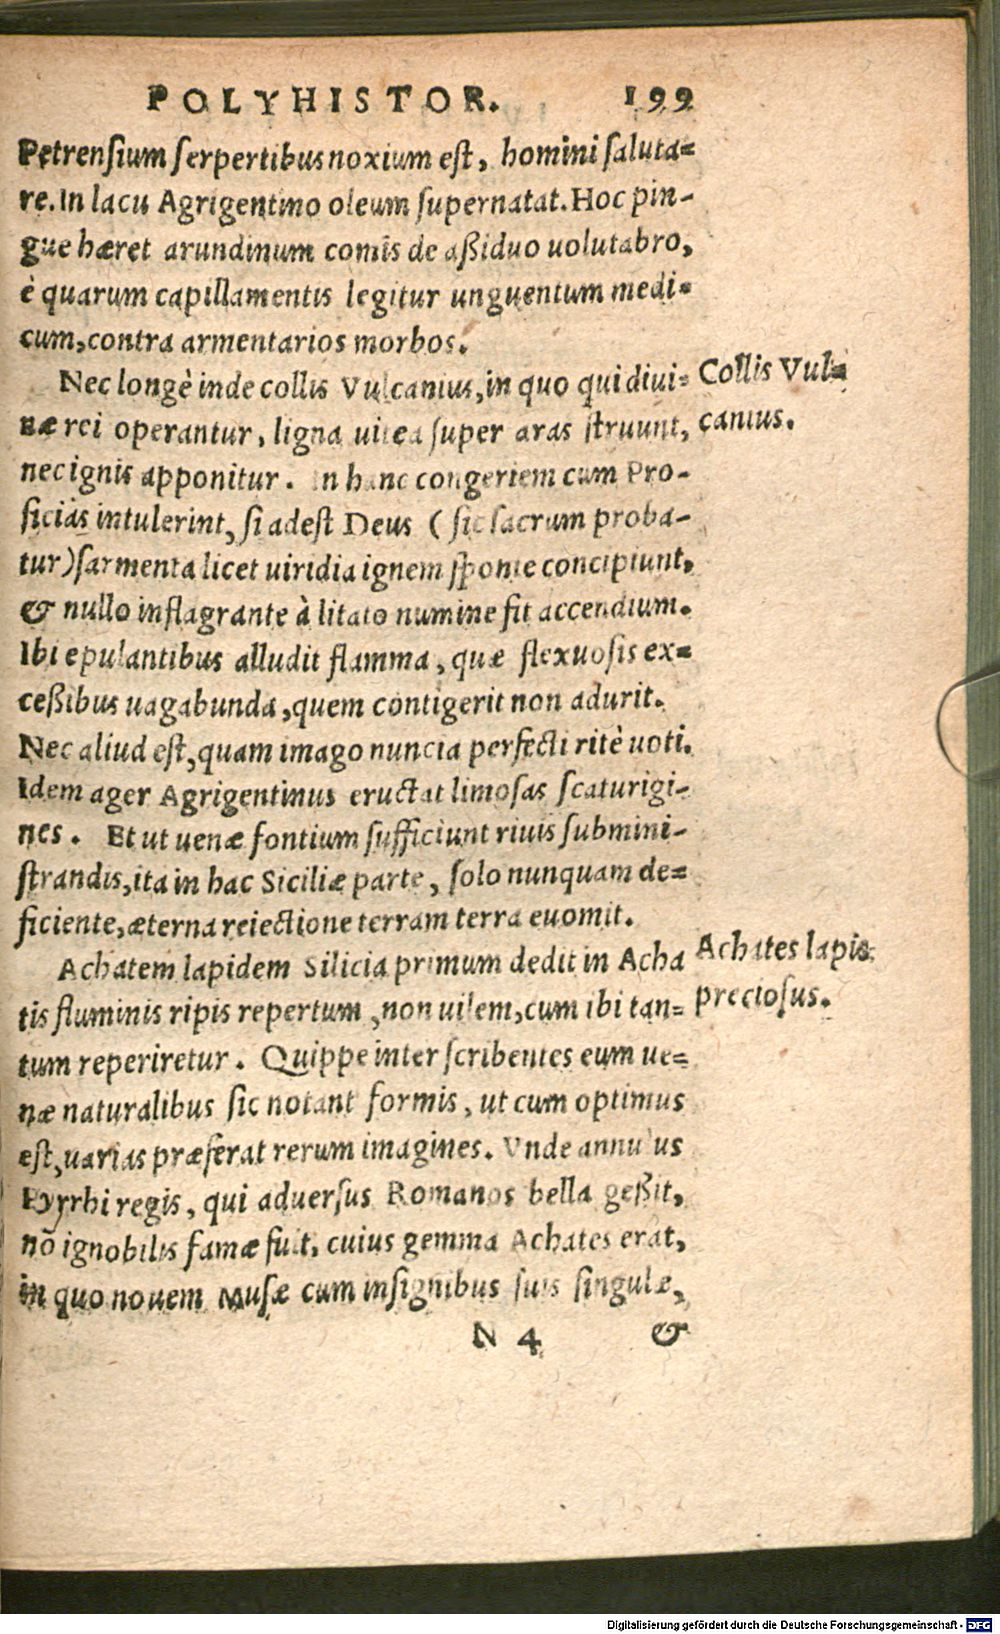 POLYHISTOR. 199
Petrensium serpertibus noxium est, homini saluta=
re. In lacu Agrigentino oleum supernatat. Hoc pin-
gue hæret arundinum comis de aßiduo uolutabro,
è quarum capillamentis legitur unguentum medi=
cum, contra armentarios morbos.
Nec longè inde collis Vulcanius, in quo qui diui=
næ rei operantur, ligna uitea super aras struunt,
nec ignis apponitur. In hanc congeriem cum Pro-
sicias intulerint, si adest Deus (sic sacrum proba-
tur) sarmenta licet uiridia ignem sponte concipiunt,
& nullo inflagrante à litato numine fit accendium.
Ibi epulantibus alludit flamma, quæ flexuosis ex=
ceßibus uagabunda, quem contigerit non adurit.
Nec aliud est, quam imago nuncia perfecti ritè uoti.
Idem ager Agrigentinus eructat limosas scaturigi-
nes. Et ut uenæ fontium sufficiunt riuis submini-
strandis, ita in hac Siciliæ parte, solo nunquam de=
ficiente, æterna reiectione terram terra euomit.
Achatem lapidem Silicia primum dedit in Acha
tis fluminis ripis repertum, non uilem, cum ibi tan=
tum reperiretur. Quippe inter scribentes eum ue=
næ naturalibus sic notant formis, ut cum optimus
est, uarias præferat rerum imagines. Vnde annulus
Pyrrhi regis, qui aduersus Romanos bella geßit,
nō ignobilis famæ fuit, cuius gemma Achates erat,
in quo nouem Musæ cum insignibus suis singulæ,
N 4 &
Collis Vul=
canius.
Achates lapis
preciosus.
Digitalisierung gefördert durch die Deutsche Forschungsgemeinschaft - DFG